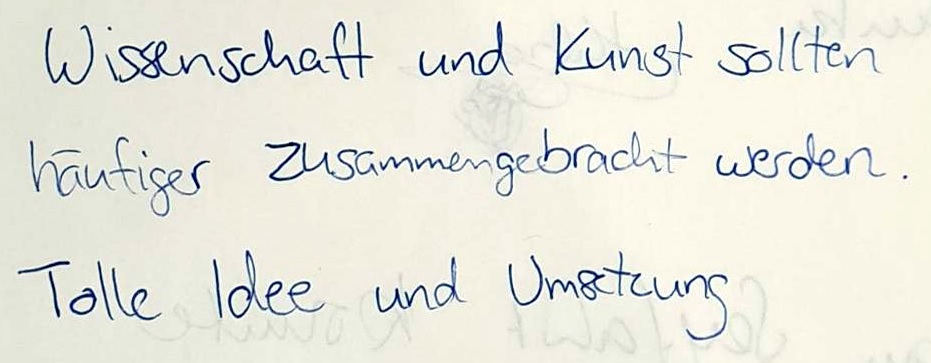 Wissenschaft und Kunst sollten
häufiger zusammengebracht werden.
Tolle Idee und Umsetzung